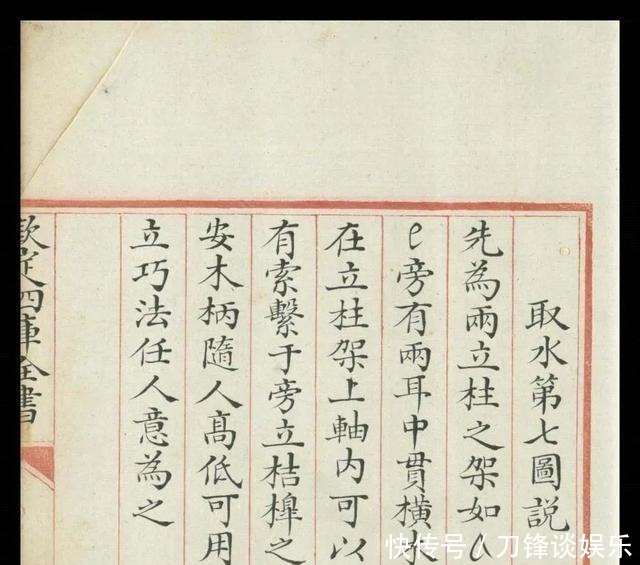 取水第七圖説
先為兩立柱之架如l
e旁有兩耳中貫橫水
在立柱架上軸内可以
有索繫于旁立桔槔之
安木柄隨人髙低可用
立巧法任人意為之
欽定四庫全書
快传号/刀锋谈娱乐